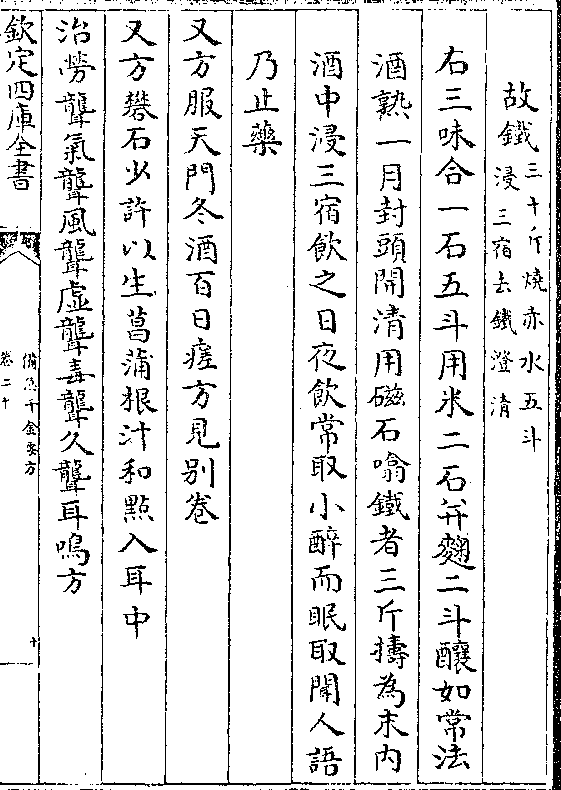 故鐵三十斤燒赤水五斗浸三宿去鐵澄清
右三味合一石五斗用米二石并麴二斗釀如常法
酒熟一月封頭開清用磁石噏鐵者三斤擣為末内
酒中浸三宿飲之日夜飲常取小醉而眠取聞人語
乃止藥
又方服天門冬酒百日瘥方見别卷
又方礬石少許以生菖蒲根汁和㸃入耳中
治勞聾氣聾風聾虛聾毒聾久聾耳鳴方
欽定四庫全書
備急千金要方
卷二十
十